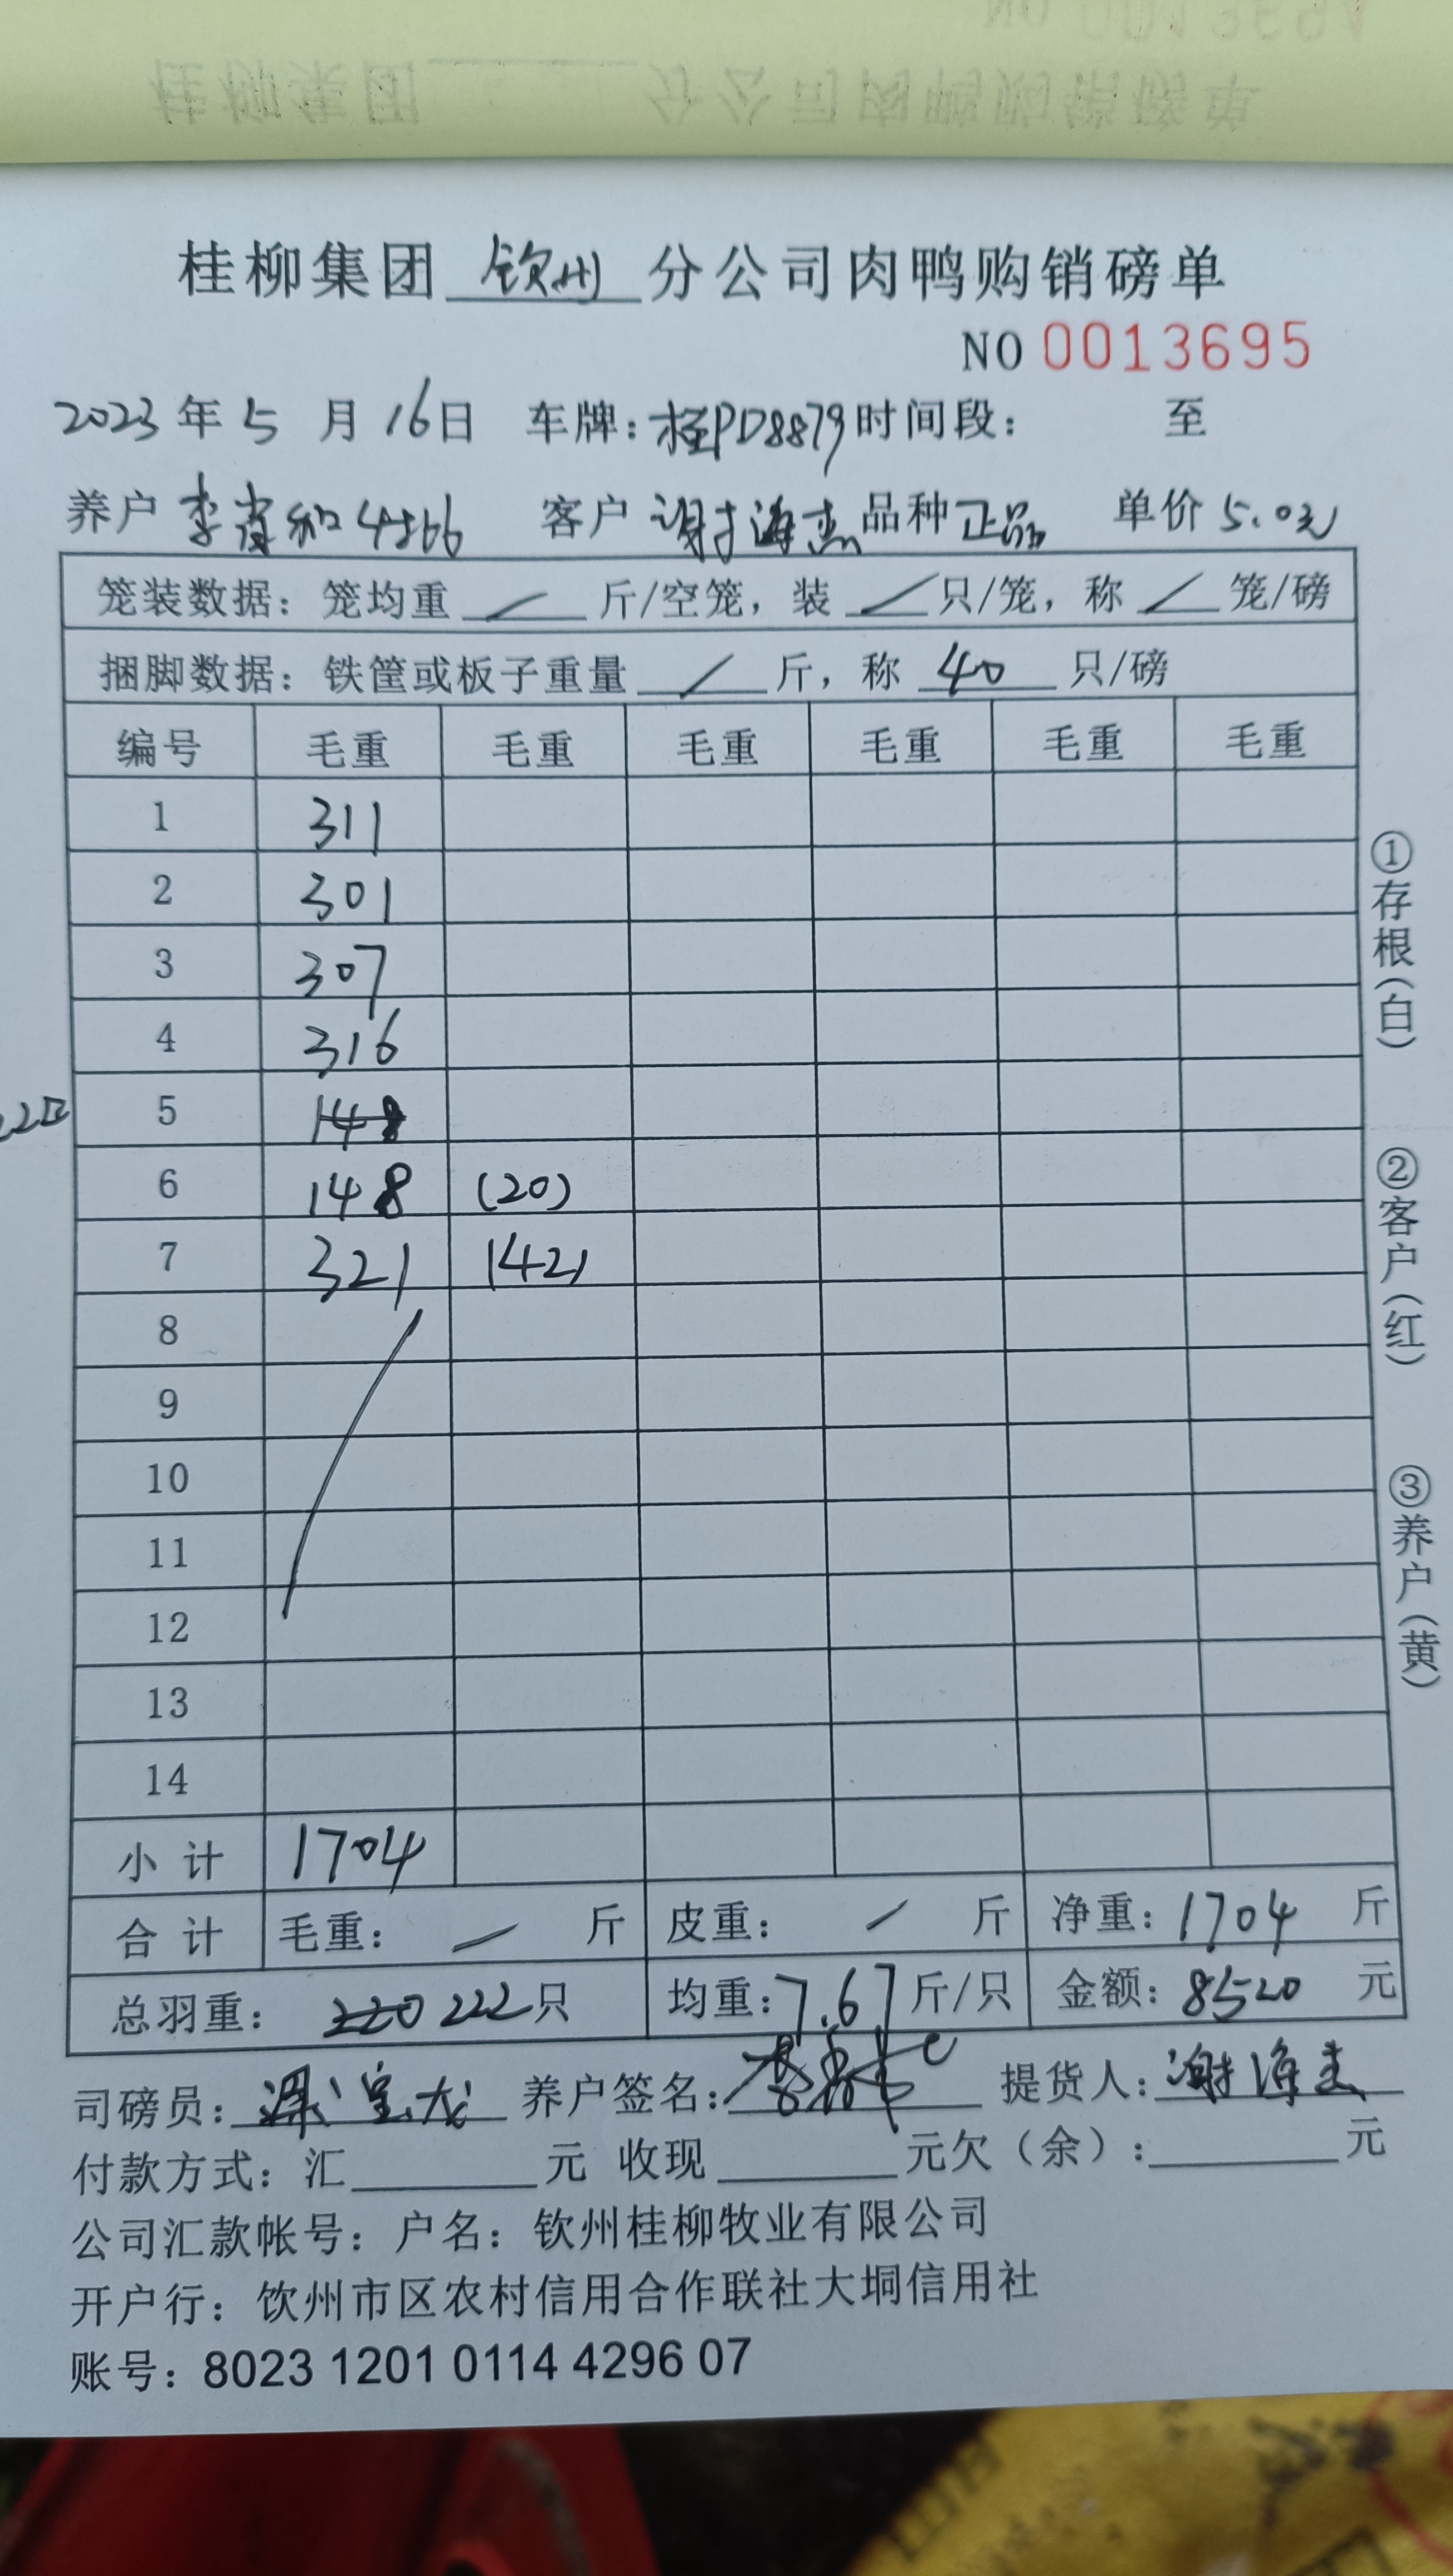 桂柳集团 钦州 分公司肉鸭购销磅单
NO 0013695
2023年5月16日 车牌:桂PD8879 时间段: 至
养户 李 客户 谢海杰 品种 正品 单价 5.0元
笼装数据: 笼均重 / 斤/空笼, 装 / 只/笼, 称 / 笼/磅
捆脚数据: 铁筐或板子重量 / 斤, 称 40 只/磅
编号 毛重 毛重 毛重 毛重 毛重 毛重
1 311
2 301
3 307
4 316
5 148
6 148 (20)
7 321 (42)
8
9
10
11
12
13
14
小计 1704
合计 毛重: / 斤 皮重: / 斤 净重: 1704 斤
总羽重: 220 222只 均重: 7.67 斤/只 金额: 8520 元
司磅员: 养户签名: 提货人: 谢海杰
付款方式: 汇 元 收现 元欠(余): 元
公司汇款帐号: 户名: 钦州桂柳牧业有限公司
开户行: 饮州市区农村信用合作联社大垌信用社
账号: 8023 1201 0114 4296 07
①存根(白)
②客户(红)
③养户(黄)